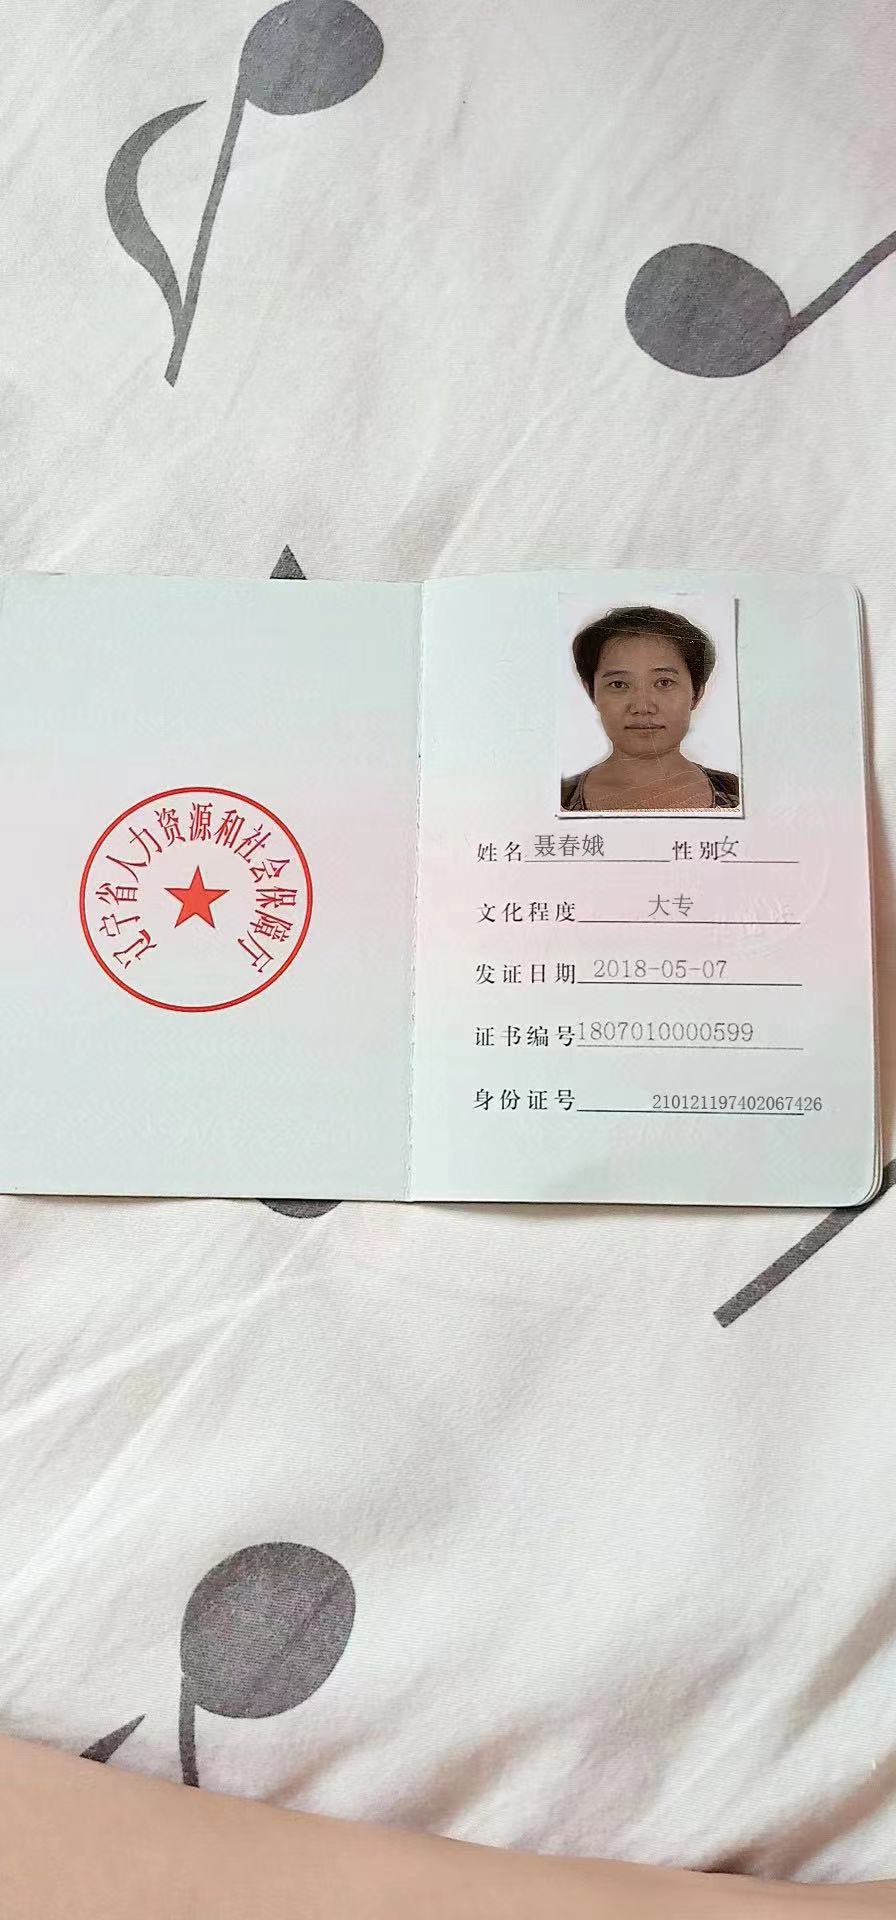 辽宁省人力资源和社会保障厅
姓名 聂春娥 性别女
文化程度 大专
发证日期 2018-05-07
证书编号1807010000599
身份证号 210121197402067426